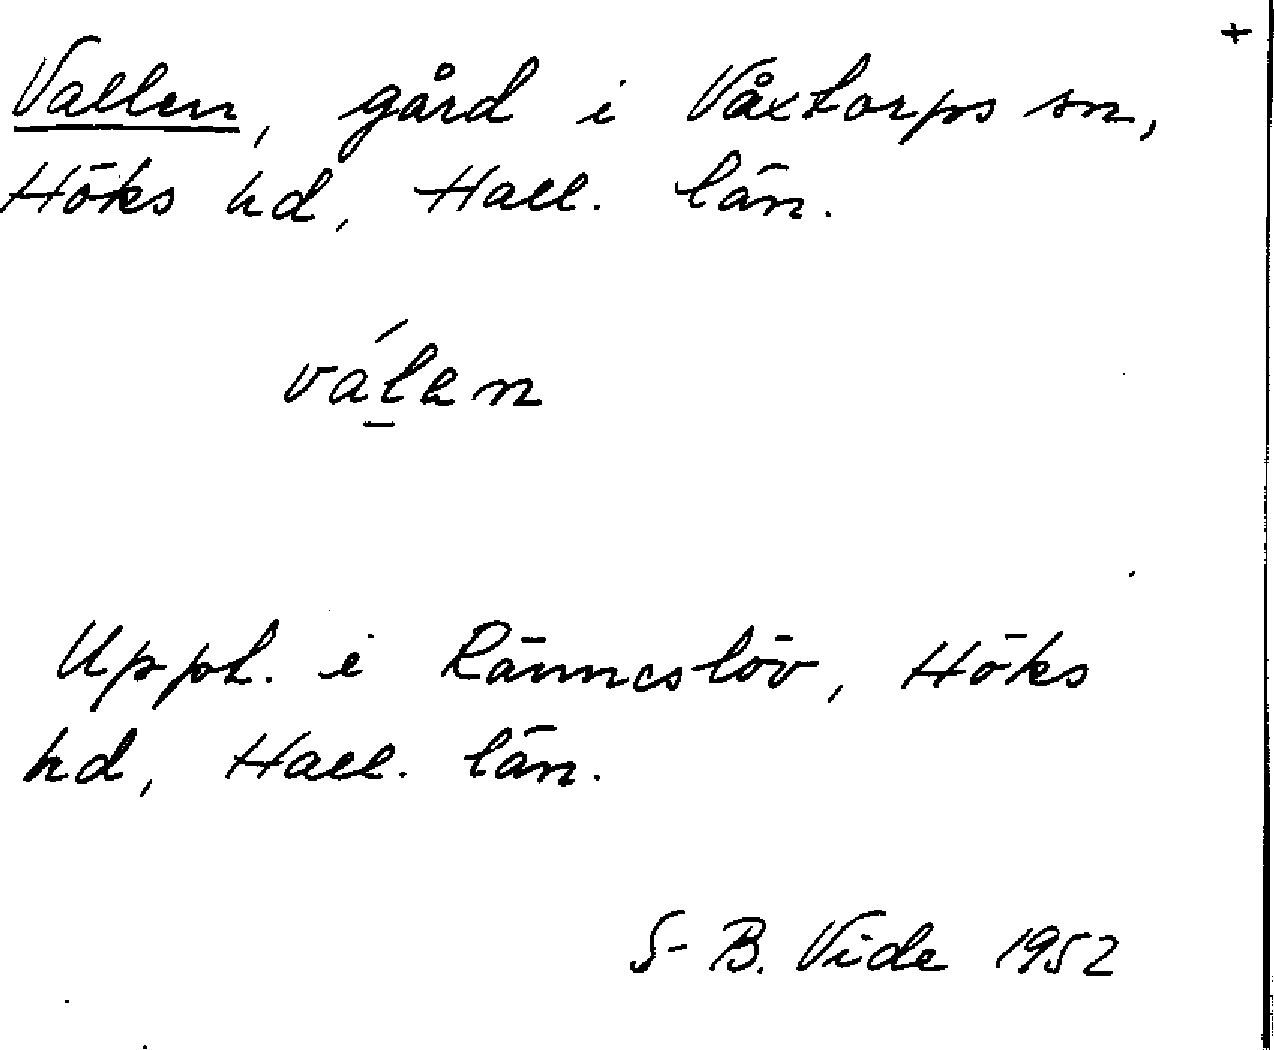 +
Vallen, gård i Våxtorps sn,
Höks hd, Hall. län.
válen
Uppt. i Ränneslöv, Höks
hd, Hall. län.
S-B. Vide 1952